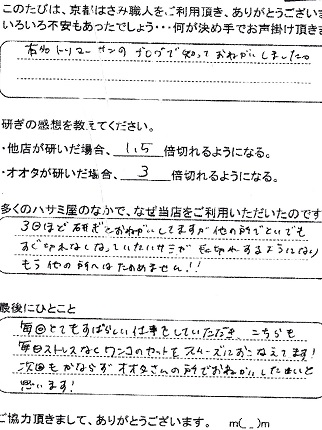 このたびは、京都はさみ職人をご利用頂き、ありがとうございま
いろいろ不安もあったでしょう・・・何が決め手でお声掛け頂きま
有名トリマーサンのブログで知っておねがいしました。
研ぎの感想を教えてください。
・他店が研いだ場合、1.5倍切れるようになる。
・オオタが研いだ場合、3倍切れるようになる。
多くのハサミ屋のなかで、なぜ当店をご利用いただいたのです
3回ほど研ぎをおねがいしてますが他の所でといでも
すぐ切れなくなっていたハサミが長切れするようになり
もう他の所へはたのめません!!
最後にひとこと
毎回とてもすばらしい仕事をしていただき こちらも
毎日ストレスなくワンコのカットをスムーズにおこなえてます!
次回もかならずオオタさんの所でおねがいしたいと
思います!
ご協力頂きまして、ありがとうございます。 m(_ _)m